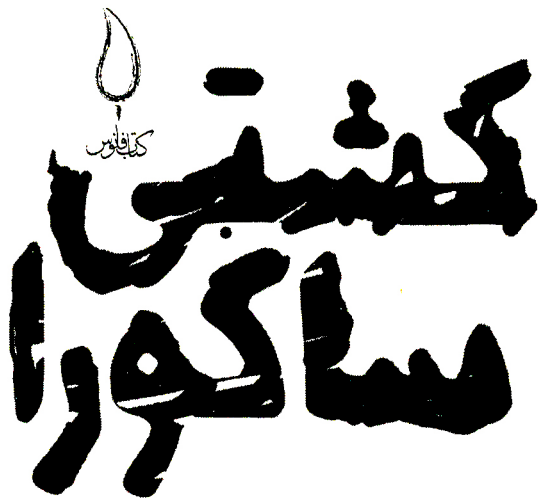 کتاب فانوس
کشتی
ساکورا